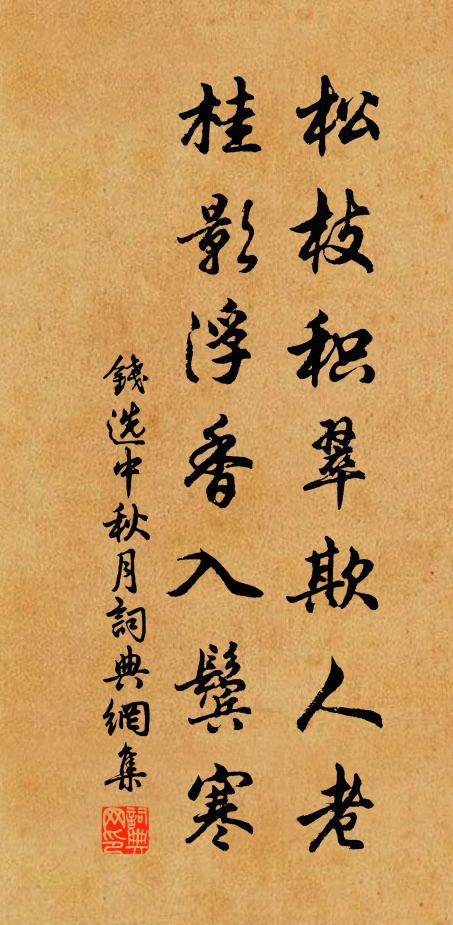 松枝积翠欺人老
桂影浮香入鬓寒
錢选中秋月詞典網集
詞典网印